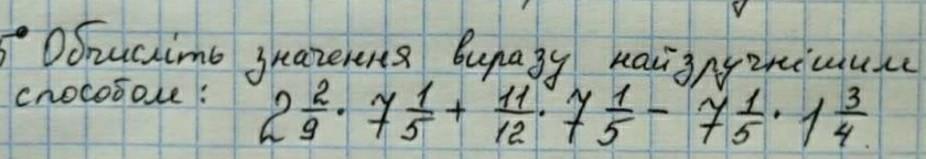 5° Обчисліть значення виразу найзручнішим
способом: 2 2/9 · 7 1/5 + 11/12 · 7 1/5 − 7 1/5 · 1 3/4.